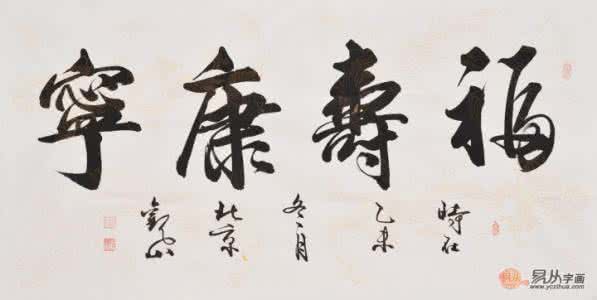 福壽康寧
時在
乙未
冬月
北京
觀山
易从字画
www.yczihua.com